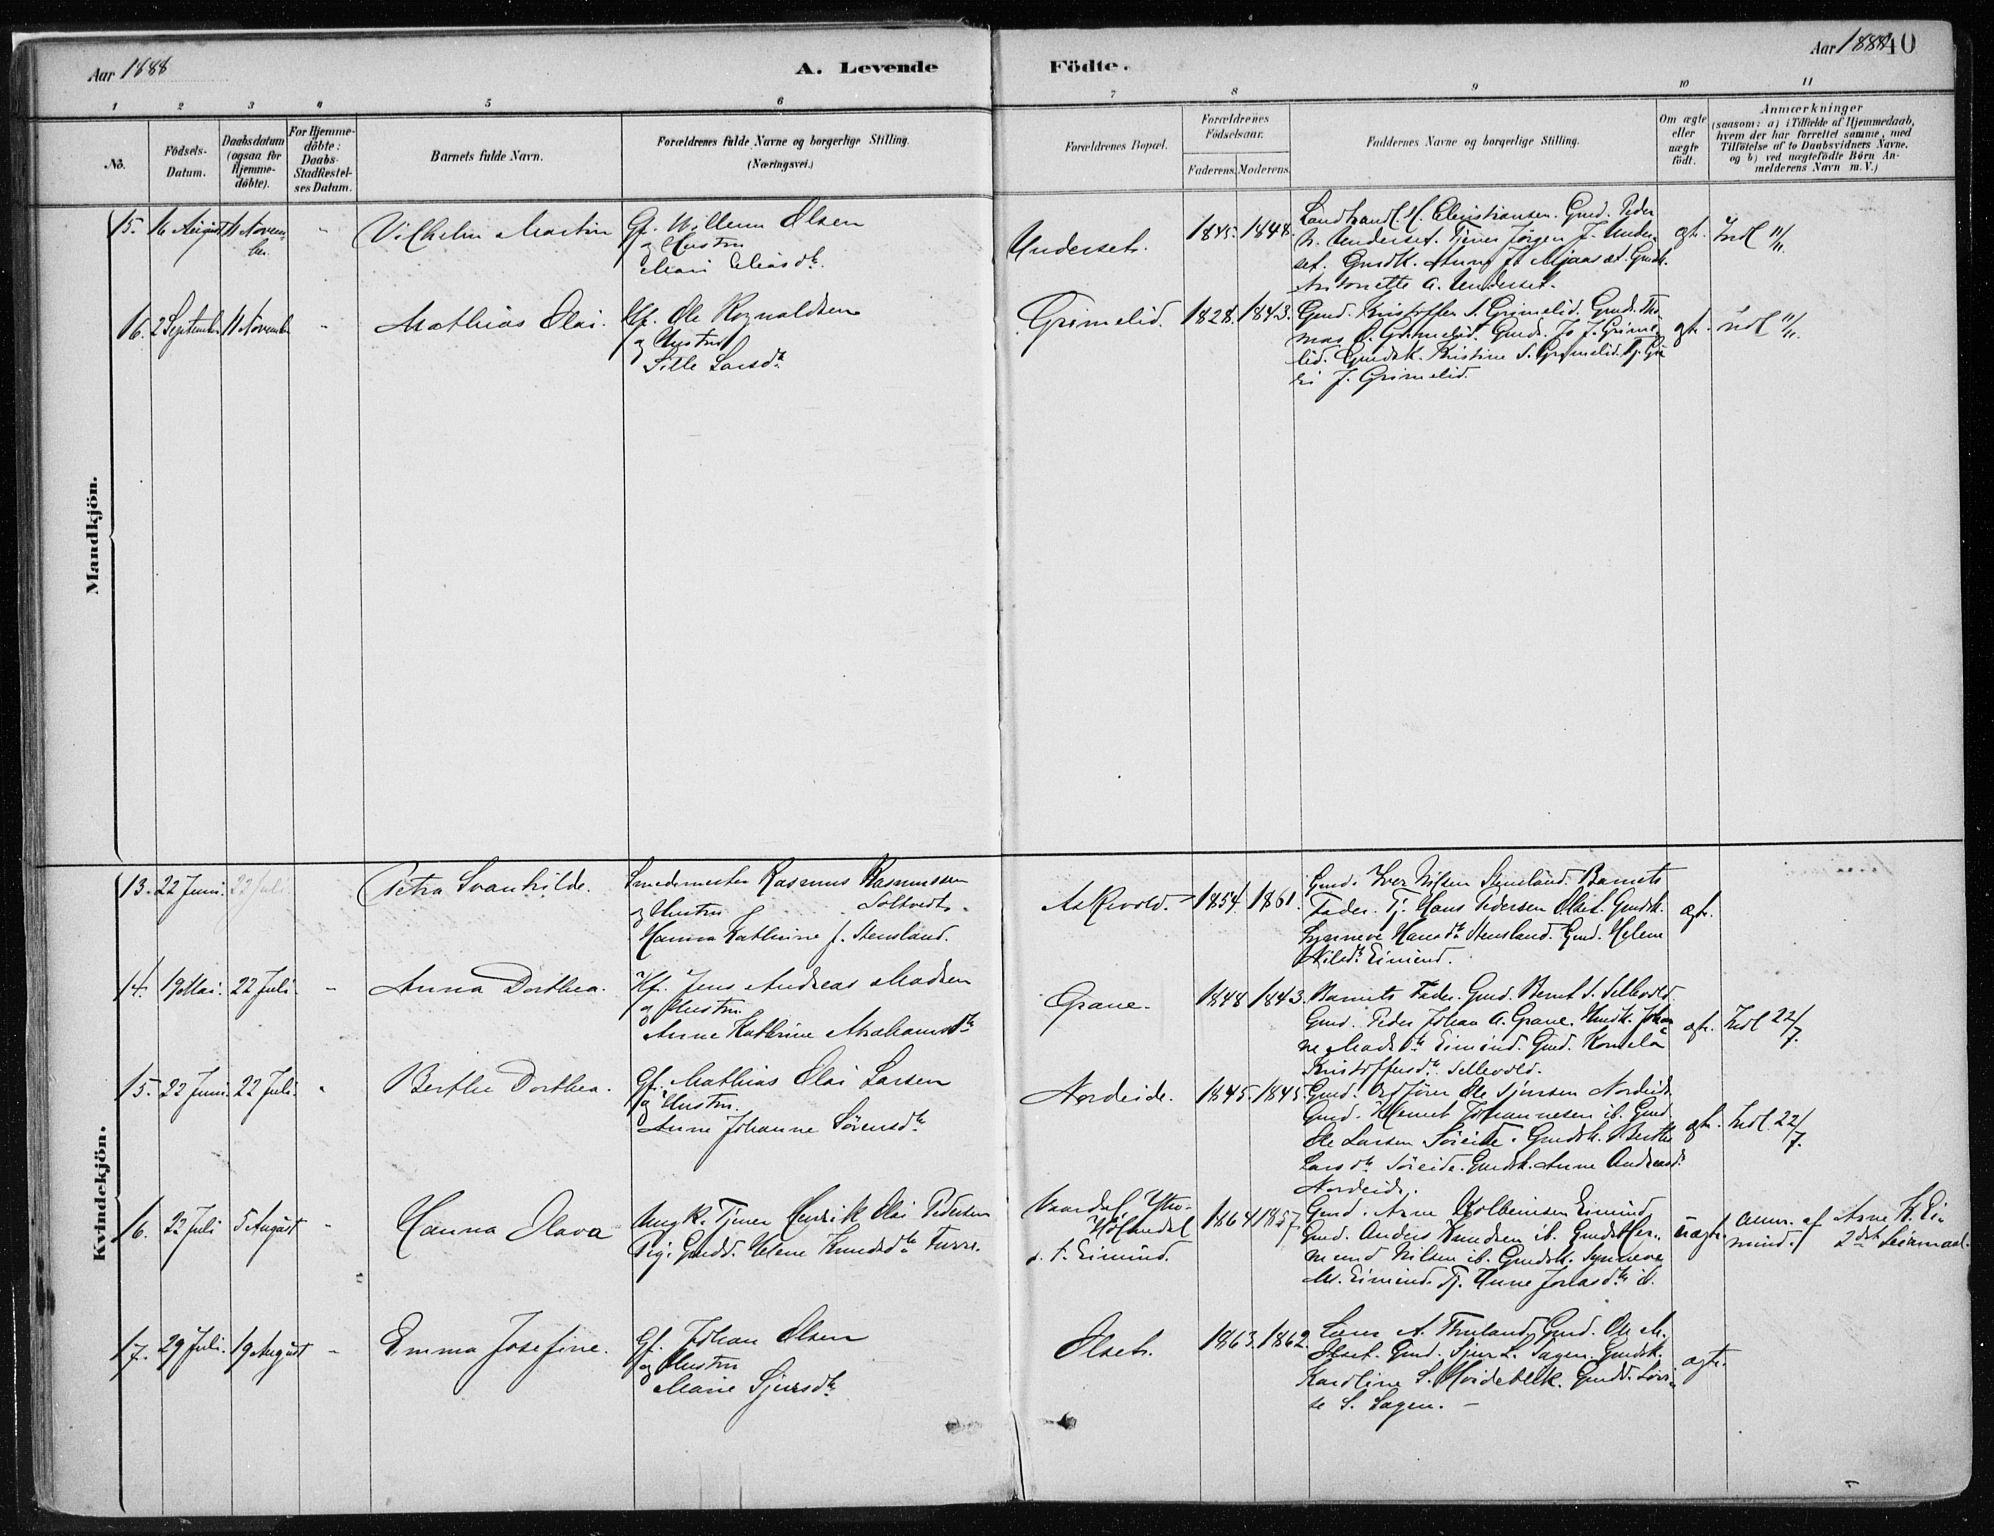 Aar 1888
A. Levende
Födte.
Aar 1888
40
1 2 3 4 5 6 7 8 9 10 11
No.
Födsels-Datum.
Daabsdatum (ogsaa for Hjemme-döbte).
For Hjemme-döbte: Daabs-Stadfæstel-ses Datum.
Barnets fulde Navn.
Forældrenes fulde Navne og borgerlige Stilling.
(Næringsvei.)
Forældrenes Bopæl.
Forældrenes Födselsaar.
Faderens. Moderens.
Faddernes Navne og borgerlige Stilling.
Om ægte eller uægte födt.
Anmærkninger
(saasom: a) i Tilfælde af Hjemmedaab,
hvem der har forrettet samme, med
Tilföielse af to Daabsvidners Navne,
og b) ved uægtefödte Börn An-
melderens Navn m. V.)
Mandkjön.
15. 16 August 11 Novem-
ber
Vilhelm Martin
Gf. Willum Olsen
og Hustru
Mari Eliasdtr.
Underset.
1845. 1848.
Landhandl. H. Christiansen. Gmd. Peder
N. Underset. Tjener Jørgen J. Under-
set. Gmdk.
Antonette A. Underset.
ægt.
Indl 11/11.
16. 2 September 11 November
Mathias Olai.
Gf. Ole Rognaldsen
og Hustru
Sille Larsdtr.
Grimelid.
1828. 1843.
Gmd. Kristoffer S. Grimelid. Gmds. Tho-
mas O. Grimelid. Gmds. Jo J. Grime-
lid. Gmdsk. Kristine S. Grimelid. Tj. Gu-
ri J. Grimelid.
ægt.
Indl 11/11.
Kvindekjön.
13. 22 Juni. 22 Juli.
Petra Svanhilde.
Smedemester Rasmus Rasmussen
Soltvedt.
og Hustru
Hanna Kathrine f. Stensland.
Askevold.
1854. 1861.
Gmd. Iver Nilsen Stensland. Barnets
Fader. Tj. Hans Pedersen Olset. Gmdsk.
Synneve Hansdtr. Stensland. Gmd. Helene
Nilsdtr. Eimind.
ægt.
14. 19 Mai. 22 Juli.
Anna Dorthea.
Hf. Jens Andreas Madsen
og Hustru
Anne Kathrine Abrahamsdtr
Grane.
1848 1843.
Barnets Fader. Gmd. Bernt S. Sellevold.
Gmd. Peder Johan A. Grane. Johan-
ne Madsdtr Eimind. Gmd. Kornelia
Kristoffersdtr. Sellevold.
ægt.
Indl 22/7.
15. 22 Juni. 22 Juli.
Berthe Dorthea.
Gf. Mathias Olai Larsen
og Hustru
Anne Johanne Sørensdtr
Nordeide.
1845. 1845.
Gmd. Ordfører Ole Sjursen Nordeide.
Gmd. Johannesen ib. Gmd.
Ole Larsen Søreide. Gmdsk. Berthe
Larsdtr Søreide. Gmdsk. Anne Andreasd.
Nordeide.
ægt.
Indl 22/7.
16. 23 Juli 5 August
Hanna Olava
Ungk. Tjener Henrik Olai Pedersen
Pig. Gmdd. Helene Knudsdtr Furre.
Vaardal, Ytre
Holmedal
Eimind.
1864 1857.
Gmd. Arne Kolbeinsen Eimind
Gmd. Anders Knudsen ib. Gmds. Her-
mund Nilsen ib. Gmdsk. Synneve
M. Eimind. Tj. Anne Jonasdtr ib.
uægt.
Anm. af Arne K. Ei-
mind. 2det Leiermaal.
17. 29 Juli. 19 August
Emma Josefine.
Gf. Johan Olsen
og Hustru
Marie Sjursdtr
Olset.
1863. 1862.
A. Thuland. Gmd. Ole M.
Olset. Gmd. Sjur L. Sagen. Gmdsk.
Karoline S. Hvidebelk. Gmdd. Lovi-
se S. Sagen.
ægte.